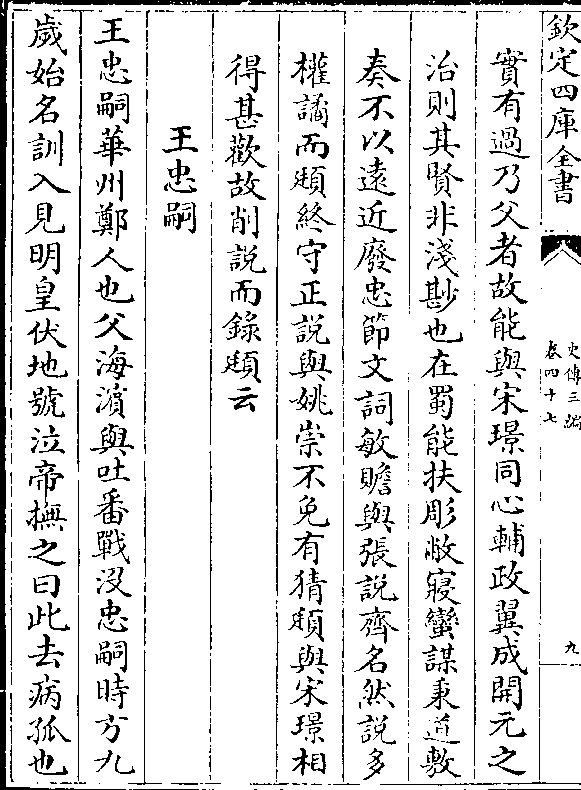 欽定四庫全書
史傳三編
卷四十七
九
實有過乃父者故能與宋璟同心輔政翼成開元之
治則其賢非淺尠也在蜀能扶彫敝寢蠻謀秉道敷
奏不以遠近廢忠節文詞敏贍與張説齊名然説多
權譎而頲終守正説與姚崇不免有猜頲與宋璟相
得甚歡故削説而錄頲云
王忠嗣
王忠嗣華州鄭人也父海濵與吐番戰没忠嗣時方九
歲始名訓入見明皇伏地號泣帝撫之曰此去病孤也